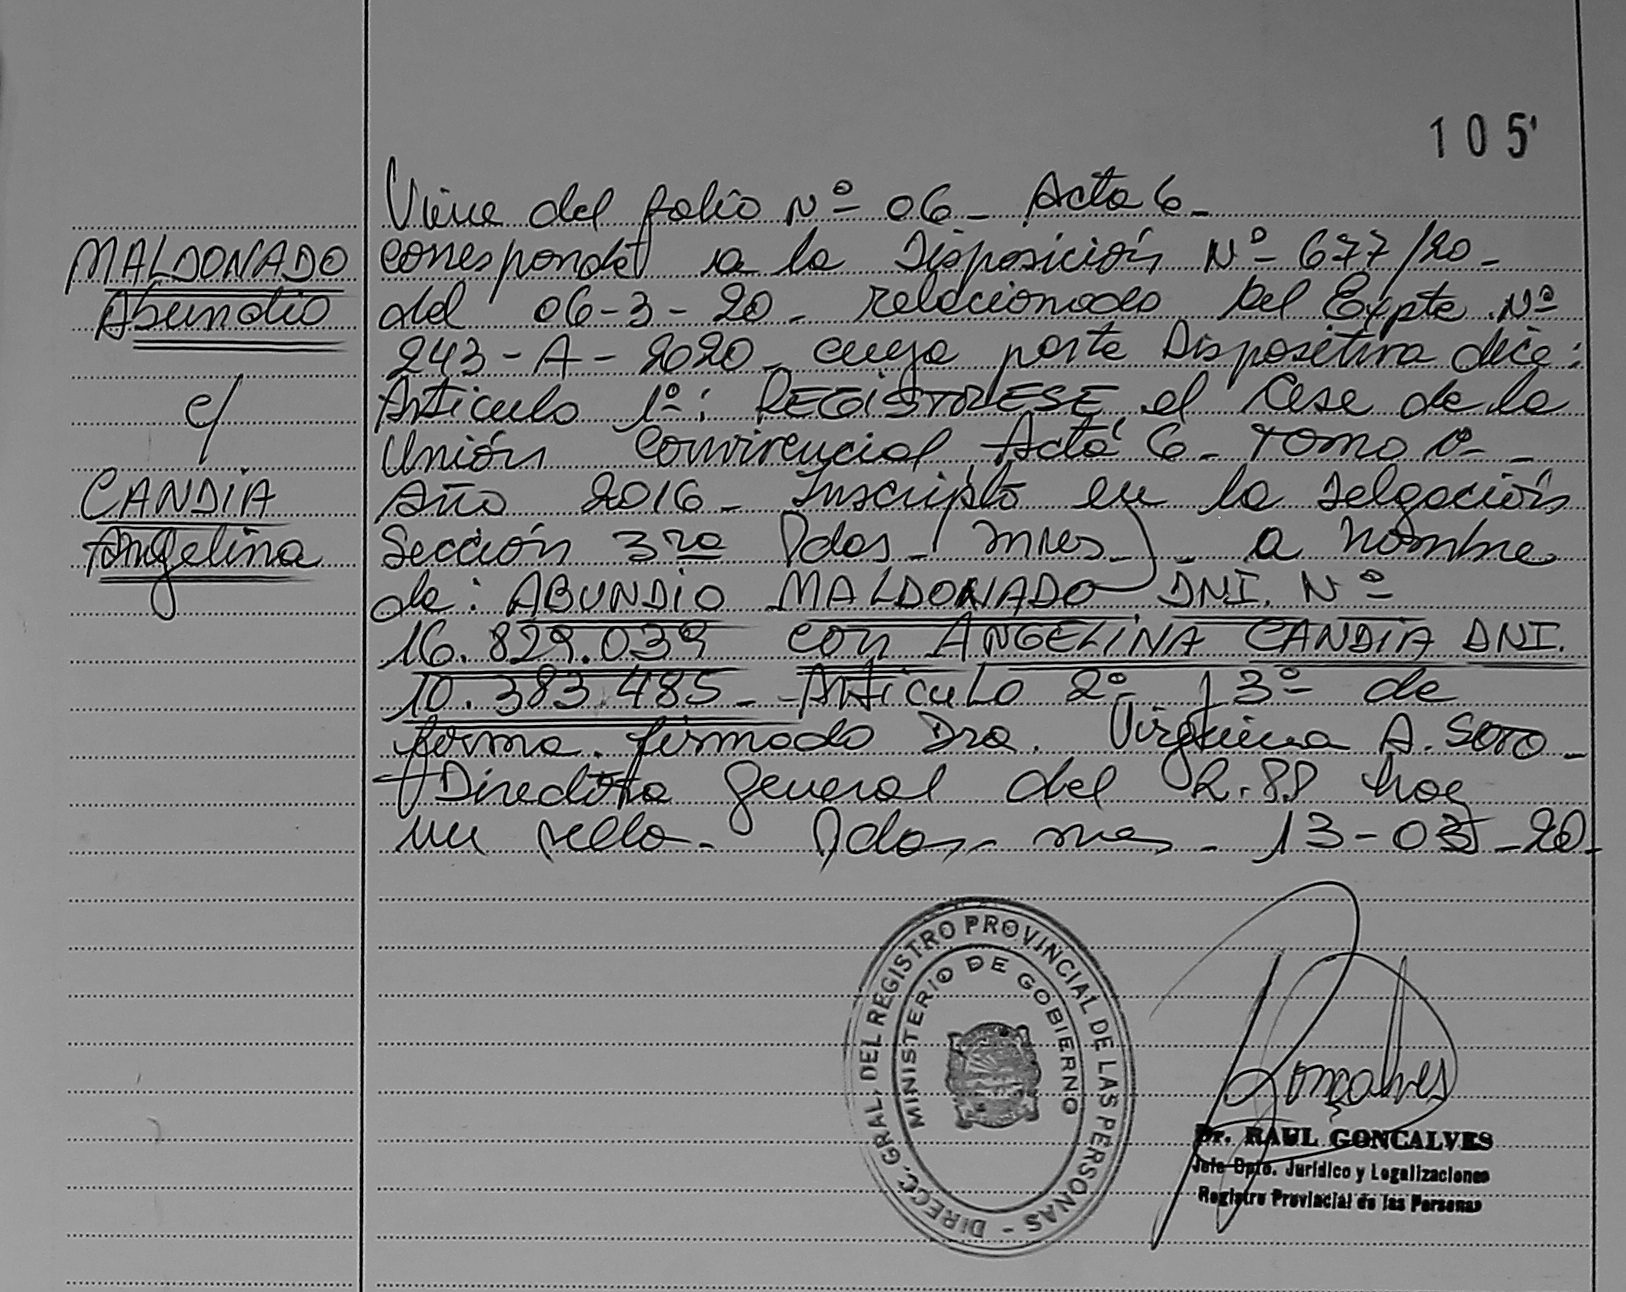 105
Viene del folio Nº 06 - Acta 6 -
MALDONADO
Abundio
c/
CANDIA
Angelina
corresponde a la Disposición Nº 677/20 -
del 06-3-20 - relacionado del Expte. Nº
243-A-2020 - cuya parte Dispositiva dice:
Articulo 1º: REGISTRESE el Cese de la
Unión Convivencial Acta 6 - Tomo 1º -
Año 2016 - Inscripto en la Delgación
Sección 3ra Pdas - Mnes - a nombre
de: ABUNDIO MALDONADO DNI. Nº
16.829.039 con ANGELINA CANDIA DNI.
10.383.485 - Articulo 2º y 3º de
forma. firmado Dra. Virginia A. SOTO -
Directora General del R.PP hay
un sello - Pdas - mnes - 13-03-20 -
DIRECC. GRAL. DEL REGISTRO PROVINCIAL DE LAS PERSONAS -
MINISTERIO DE GOBIERNO
Gonçalves
Dr. RAUL GONCALVES
Jefe Dpto. Jurídico y Legalizaciones
Registro Provincial de las Personas